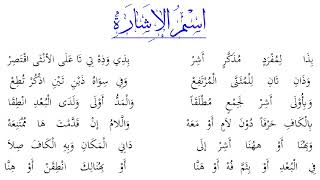 اِسْمُ الْإِشَارَةِ
بِذَا لِمُفْرَدٍ مُذَكَّرٍ أَشِرْ بِذِي وَذِهْ تِي تَا عَلَى الْأُنْثَى اقْتَصِرْ
وَذَانِ تَانِ لِلْمُثَنَّى الْمُرْتَفِعْ وَفِي سِوَاهُ ذَيْنِ تَيْنِ اذْكُرْ تُطِعْ
وَبِأُولَى أَشِرْ لِجَمْعٍ مُطْلَقَاً وَالْمَدُّ أَوْلَى وَلَدَى الْبُعْدِ انْطِقَا
بِالْكَافِ حَرْفَاً دُونَ لَامٍ أَوْ مَعَهْ وَاللَّامُ إِنْ قَدَّمْتَ هَا مُمْتَنِعَهْ
وَبِهُنَا أَوْ هٰهُنَا أَشِرْ إِلَى دَانِي الْمَكَانِ وَبِهِ الْكَافَ صِلَا
فِي الْبُعْدِ أَوْ بِثَمَّ فُهْ أَوْ هَنَّا أَوْ بِهُنَالِكَ انْطِقَنْ أَوْ هِنَّا